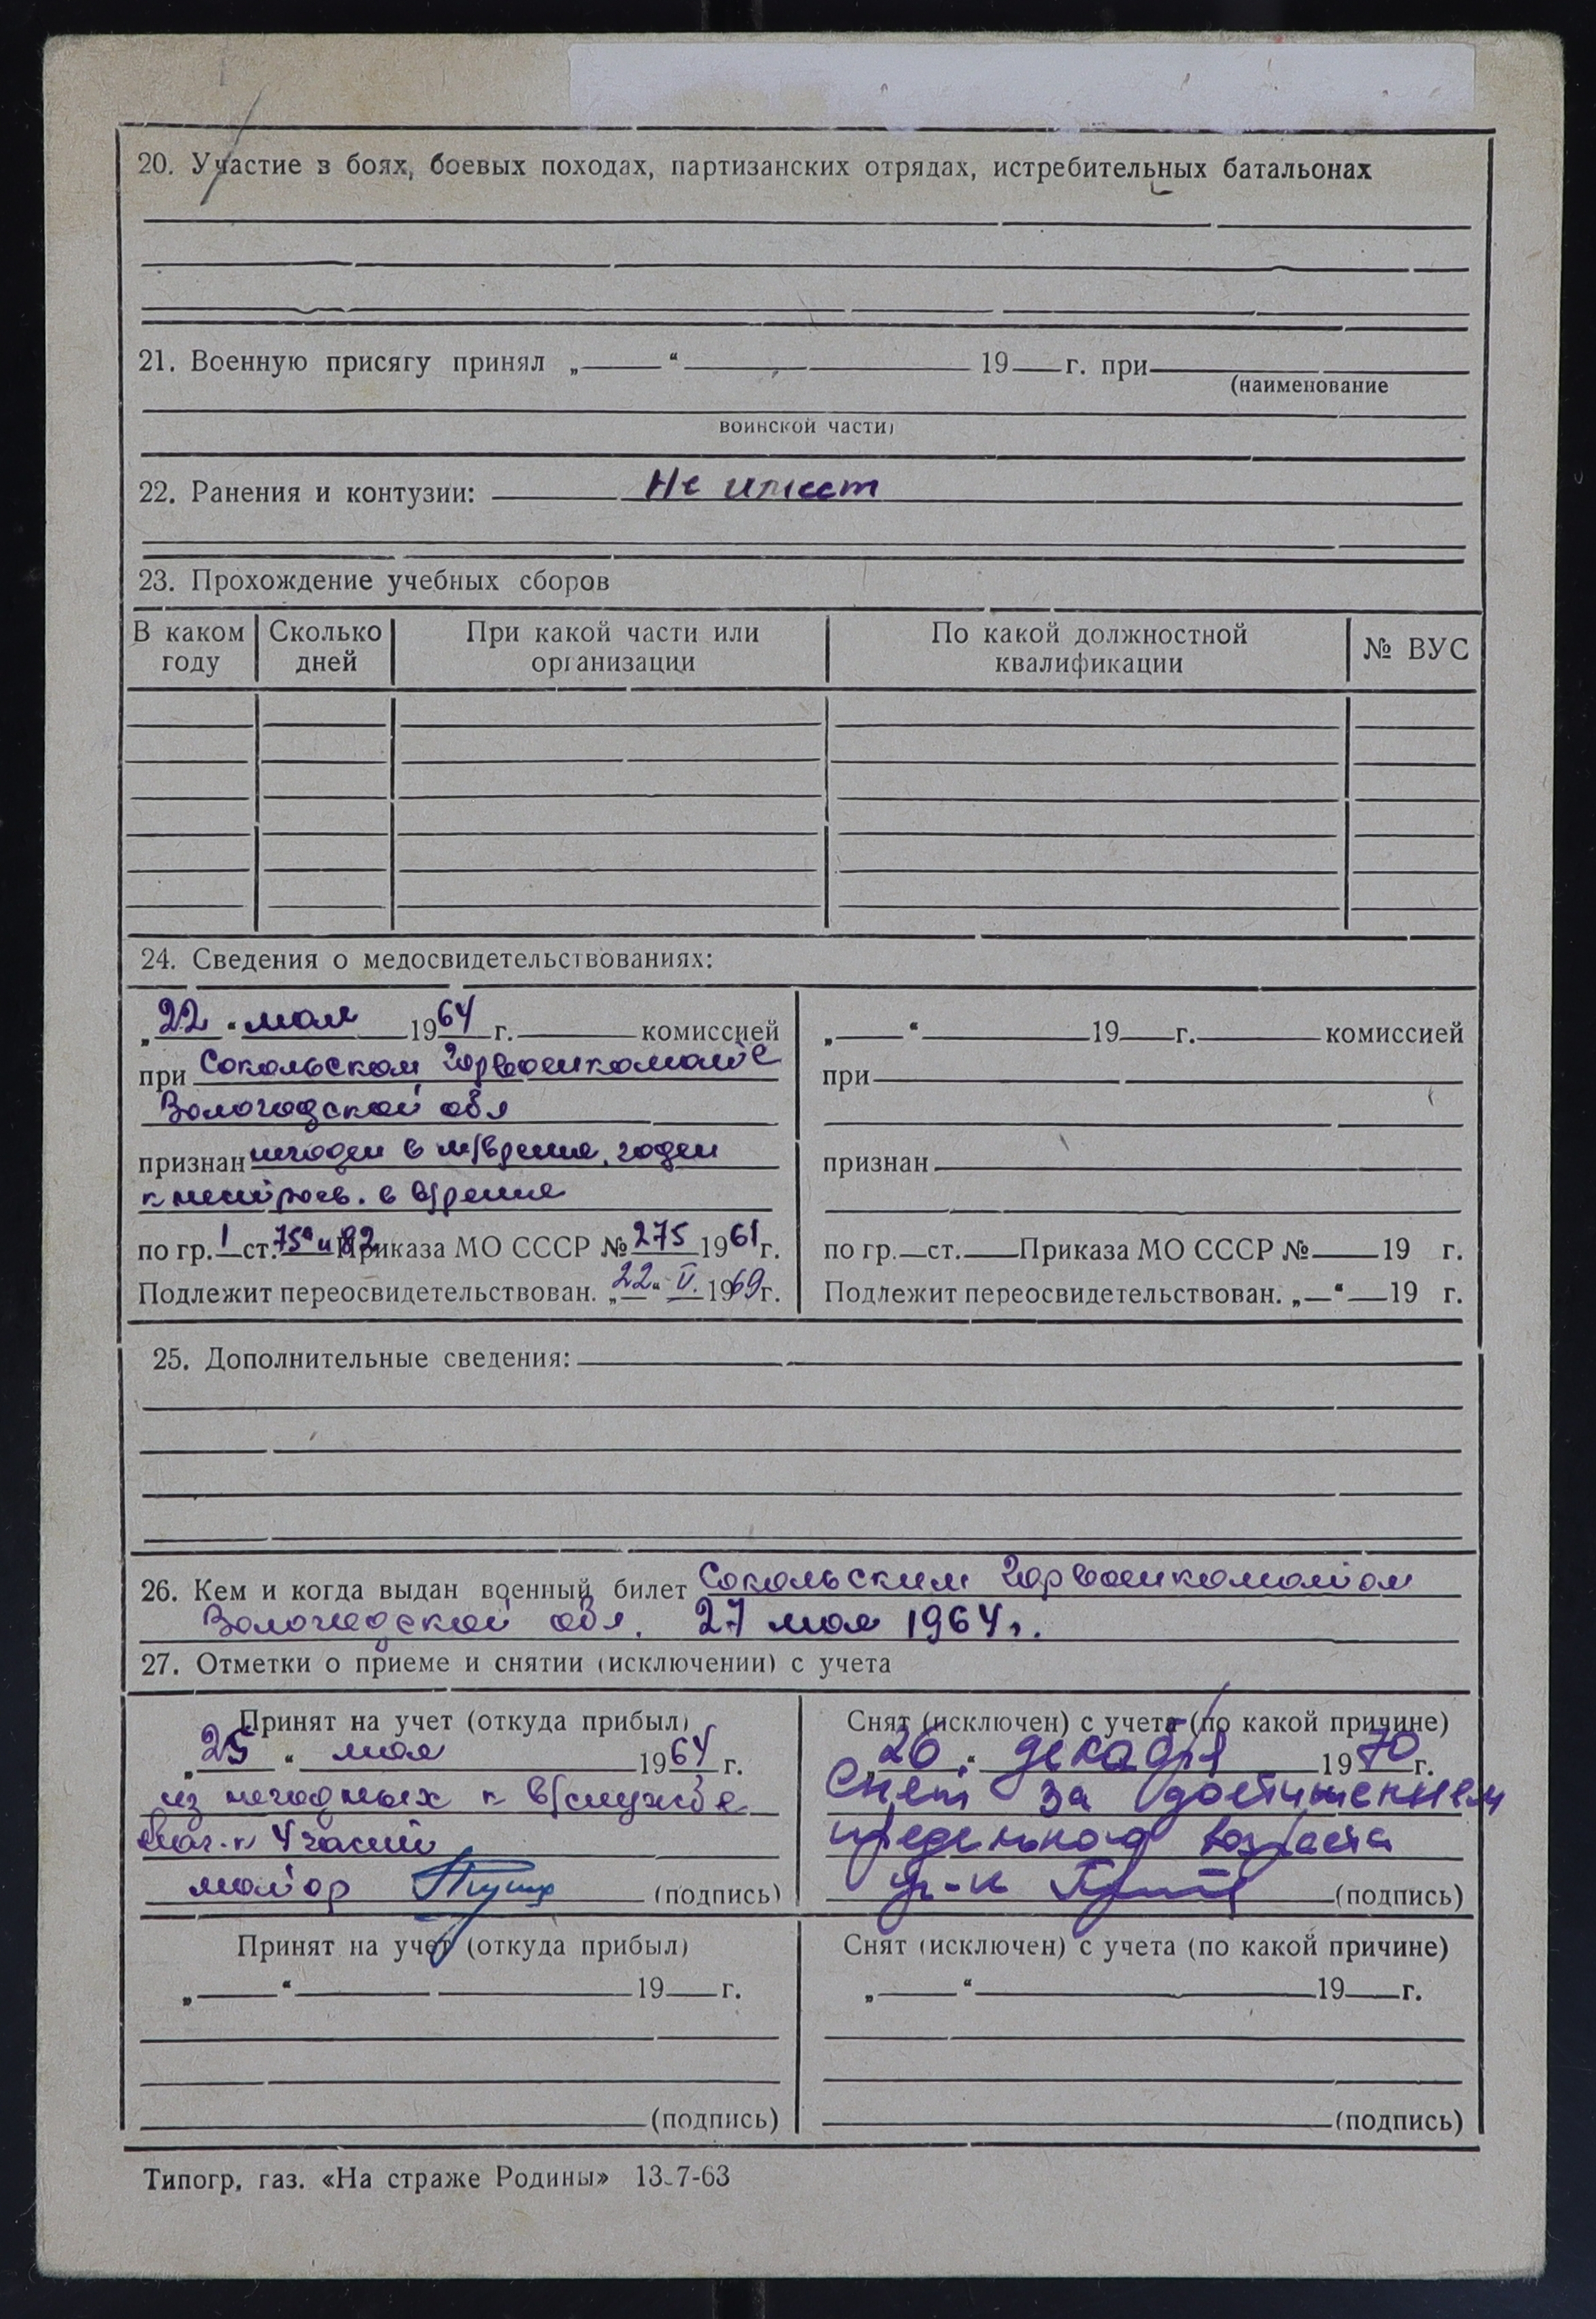 20. Участие в боях, боевых походах, партизанских отрядах, истребительных батальонах
21. Военную присягу принял „ “ 19 г. при
(наименование
воинской части)
22. Ранения и контузии: Не имеет
23. Прохождение учебных сборов
В каком году | Сколько дней | При какой части или организации | По какой должностной квалификации | № ВУС
24. Сведения о медосвидетельствованиях:
„22“ мая 1964 г. комиссией
при Сокольском Горвоенкомате
Вологодской обл
признан негоден в м/время, годен
к нестроев. в в/время
по гр. 1 ст. 75а и 82 Приказа МО СССР № 275 1961 г.
Подлежит переосвидетельствован. „22“ V. 1969 г.
„ “ 19 г. комиссией
при
признан
по гр. ст. Приказа МО СССР № 19 г.
Подлежит переосвидетельствован. „ “ 19 г.
25. Дополнительные сведения:
26. Кем и когда выдан военный билет Сокольским Горвоенкоматом
Вологодской обл. 27 мая 1964 г.
27. Отметки о приеме и снятии (исключении) с учета
Принят на учет (откуда прибыл)
„25“ мая 1964 г.
из негодных к в/службе
Нач-к 4 части
майор (подпись)
Снят (исключен) с учета (по какой причине)
„26“ декабря 1970 г.
Снят за достижением
предельного возраста
(подпись)
Принят на учет (откуда прибыл)
„ “ 19 г.
(подпись)
Снят (исключен) с учета (по какой причине)
„ “ 19 г.
(подпись)
Типогр. газ. «На страже Родины» 13-7-63